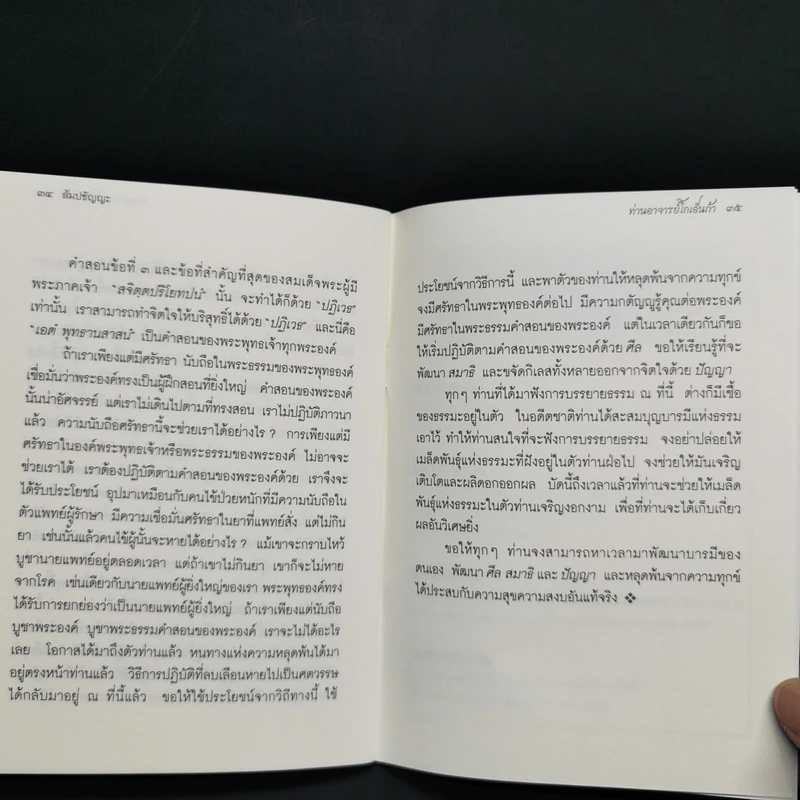 ๓๔ สัมปชัญญะ
คำสอนข้อที่ ๓ และข้อที่สำคัญที่สุดของสมเด็จพระผู้มี
พระภาคเจ้า "สจิตฺตปริโยทปนํ" นั้น จะทำได้ก็ด้วย "ปฏิเวธ"
เท่านั้น เราสามารถทำจิตใจให้บริสุทธิ์ได้ด้วย "ปฏิเวธ" และนี่คือ
"เอตํ พุทฺธานสาสนํ" เป็นคำสอนของพระพุทธเจ้าทุกพระองค์
ถ้าเราเพียงแต่มีศรัทธา นับถือในพระธรรมของพระพุทธองค์
เชื่อมั่นว่าพระองค์ทรงเป็นผู้ฝึกสอนที่ยิ่งใหญ่ คำสอนของพระองค์
นั้นน่าอัศจรรย์ แต่เราไม่เดินไปตามที่ทรงสอน เราไม่ปฏิบัติภาวนา
แล้ว ความนับถือศรัทธานี้จะช่วยเราได้อย่างไร ? การเพียงแต่มี
ศรัทธาในองค์พระพุทธเจ้าหรือพระธรรมของพระองค์ ไม่อาจจะ
ช่วยเราได้ เราต้องปฏิบัติตามคำสอนของพระองค์ด้วย เราจึงจะ
ได้รับประโยชน์ อุปมาเหมือนกับคนไข้ป่วยหนักที่มีความนับถือใน
ตัวแพทย์ผู้รักษา มีความเชื่อมั่นศรัทธาในยาที่แพทย์สั่ง แต่ไม่กิน
ยา เช่นนั้นแล้วคนไข้ผู้นั้นจะหายได้อย่างไร ? แม้เขาจะกราบไหว้
บูชานายแพทย์อยู่ตลอดเวลา แต่ถ้าเขาไม่กินยา เขาก็จะไม่หาย
จากโรค เช่นเดียวกับนายแพทย์ผู้ยิ่งใหญ่ของเรา พระพุทธองค์ทรง
ได้รับการยกย่องว่าเป็นนายแพทย์ผู้ยิ่งใหญ่ ถ้าเราเพียงแต่นับถือ
บูชาพระองค์ บูชาพระธรรมคำสอนของพระองค์ เราจะไม่ได้อะไร
เลย โอกาสได้มาถึงตัวท่านแล้ว หนทางแห่งความหลุดพ้นได้มา
อยู่ตรงหน้าท่านแล้ว วิธีการปฏิบัติที่ลบเลือนหายไปเป็นศตวรรษ
ได้กลับมาอยู่ ณ ที่นี้แล้ว ขอให้ใช้ประโยชน์จากวิถีทางนี้ ใช้
ท่านอาจารย์โกเอ็นก้า ๓๕
ประโยชน์จากวิธีการนี้ และพาตัวของท่านให้หลุดพ้นจากความทุกข์
จงมีศรัทธาในพระพุทธองค์ต่อไป มีความกตัญญูรู้คุณต่อพระองค์
มีศรัทธาในพระธรรมคำสอนของพระองค์ แต่ในเวลาเดียวกันก็ขอ
ให้เริ่มปฏิบัติตามคำสอนของพระองค์ด้วย ศีล ขอให้เรียนรู้ที่จะ
พัฒนา สมาธิ และขจัดกิเลสทั้งหลายออกจากจิตใจด้วย ปัญญา
ทุกๆ ท่านที่ได้มาฟังการบรรยายธรรม ณ ที่นี้ ต่างก็มีเชื้อ
ของธรรมะอยู่ในตัว ในอดีตชาติท่านได้สะสมบุญบารมีแห่งธรรม
เอาไว้ ทำให้ท่านสนใจที่จะฟังการบรรยายธรรม จงอย่าปล่อยให้
เมล็ดพันธุ์แห่งธรรมะที่ฝังอยู่ในตัวท่านฝ่อไป จงช่วยให้มันเจริญ
เติบโตและผลิดอกออกผล บัดนี้ถึงเวลาแล้วที่ท่านจะช่วยให้เมล็ด
พันธุ์แห่งธรรมะในตัวท่านเจริญงอกงาม เพื่อที่ท่านจะได้เก็บเกี่ยว
ผลอันวิเศษยิ่ง
ขอให้ทุกๆ ท่านจงสามารถหาเวลามาพัฒนาบารมีของ
ตนเอง พัฒนา ศีล สมาธิ และ ปัญญา และหลุดพ้นจากความทุกข์
ได้ประสบกับความสุขความสงบอันแท้จริง ❖